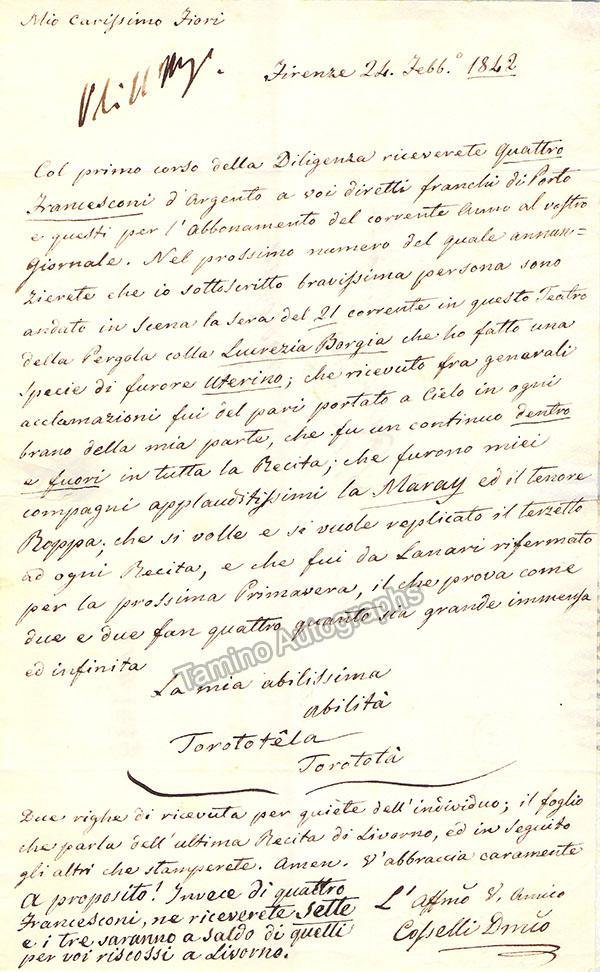 Mio carissimo Fiori
Firenze 24. Febb.º 1842
Col primo corso della Diligenza riceverete Quattro
Francesconi d'Argento a voi diretti franchi di Porto
e questi per l'Abbonamento del corrente Anno al vostro
Giornale. Nel prossimo numero del quale annun=
zierete che io sottoscritto bravissima persona sono
andato in scena la sera del 21 corrente in questo Teatro
della Pergola colla Lucrezia Borgia che ho fatto una
specie di furore Uterino; che ricevuto fra generali
acclamazioni fui del pari portato a Cielo in ogni
brano della mia parte, che fu un continuo dentro
e fuori in tutta la Recita; che furono miei
compagni applauditissimi la Maray ed il tenore
Roppa; che si volle e si vuole replicato il terzetto
ad ogni Recita, e che fui da Lanari rifermato
per la prossima Primavera, il che prova come
due e due fan quattro quanto sia grande immensa
ed infinita
La mia abilissima
abilità
Torototêla
Torototà
Due righe di ricevuta per quiete dell'individuo; il foglio
che parla dell'ultima Recita di Livorno, ed in seguito
gli altri che stamperete. Amen. V'abbraccia caramente
A proposito! Invece di quattro
Francesconi, ne riceverete sette
e i tre saranno a saldo di quelli
per voi riscossi a Livorno.
L'Affmo V. Amico
Cosselli Dmco
Tamino Autographs